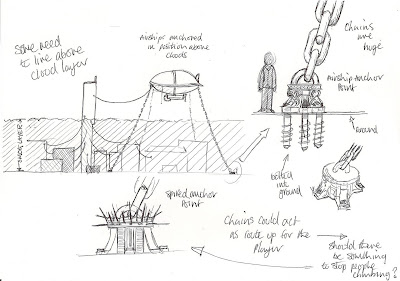 Some need
to live above
cloud layer
Airships anchored
in position above
clouds
Chains
are
huge
Airship Anchor
Point
ground
bolted
into
ground
spiked anchor
Point
Chains could act
as route up for the
Player
should there
be something
to stop people
climbing?